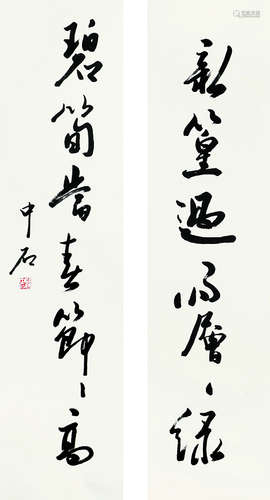 新篁過雨層々綠
碧筍當春節々高
中石